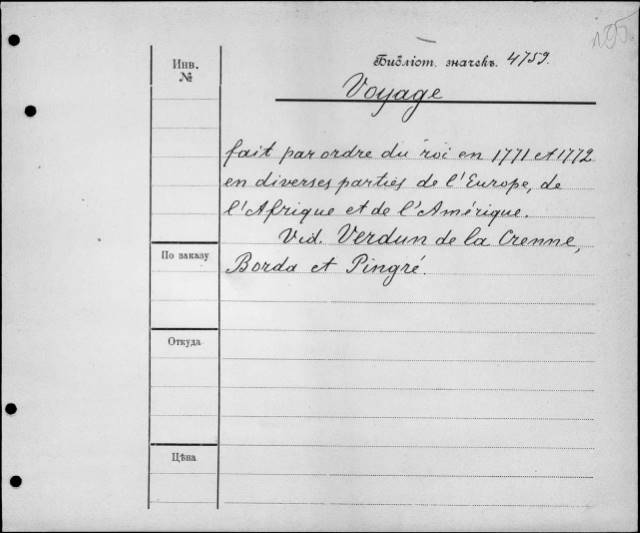 195.
Инв.
№
Библіот. значекъ. 4759.
Voyage
fait par ordre du roi en 1771 et 1772
en diverses parties de l'Europe, de
l'Afrique et de l'Amérique.
Vid. Verdun de la Crenne,
Borda et Pingré.
По заказу
Откуда
Цѣна